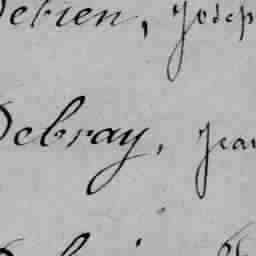 Debien, Josep
Debray, Jean